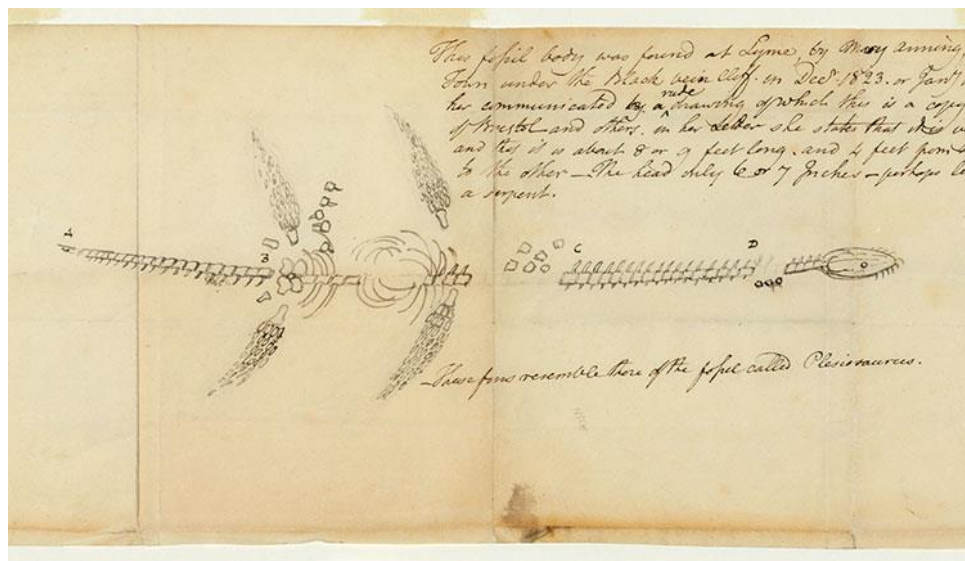 This fossil body was found at Lyme, by Mary anning,
Town under the Black vein Cliff. in Decr. 1823. or Jany
her communicated by a rude drawing of which this is a copy
of Bristol and others. in her Letter she states that it is
and this it is about 8 or 9 feet long. and 4 feet from
to the other — The head only 6 or 7 Inches — perhaps
a serpent.
A
B
C
D
— These fins resemble those of the fossil called Plesiosaurus.